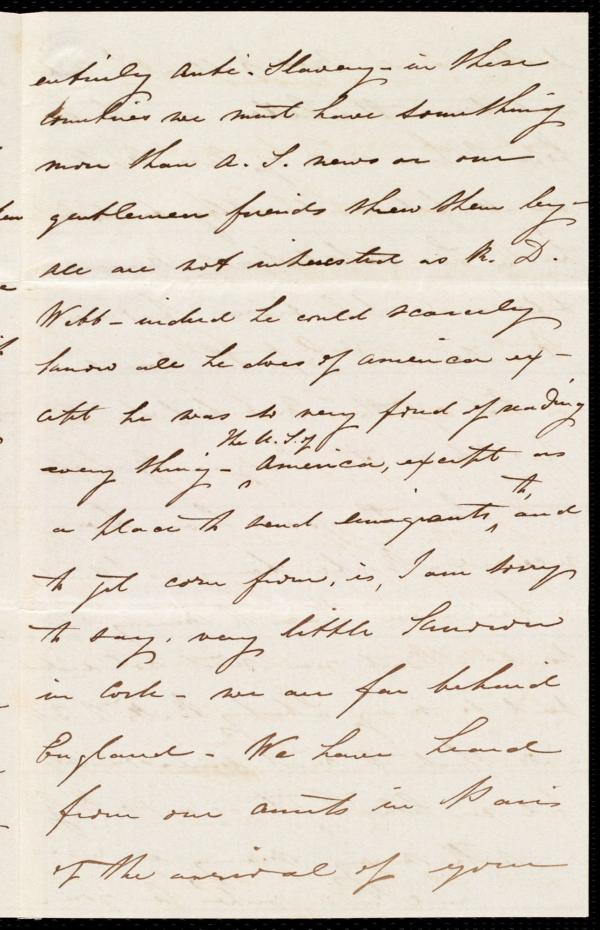 entirely Anti-Slavery - in these
countries we must have something
more than A. S. news or our
gentlemen friends throw them by -
all are not interested as R. D.
Webb - indeed he could scarcely
know all he does of America ex-
cept he was so very fond of reading
every thing - The U.S. of America, except as
a place to send emigrants to, and
to get corn from, is, I am sorry
to say, very little known
in Cork - we are far behind
England - We have heard
from our aunts in Paris
of the arrival of your